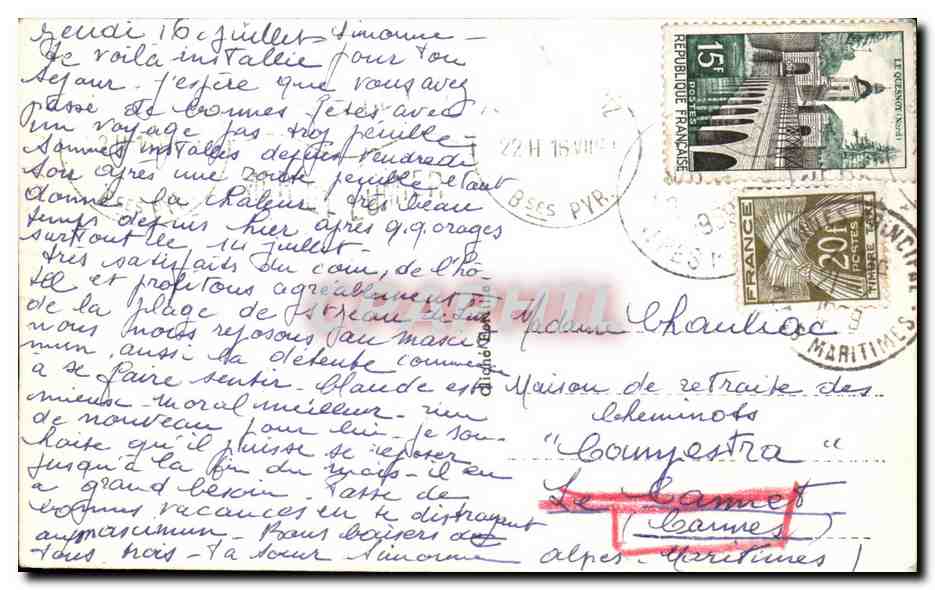 Jeudi 16 juillet Simonne -
Te voilà installée pour ton
séjour - j'espère que vous avez
passé de bonnes fêtes avec
un voyage pas trop pénible -
Sommes installés depuis vendredi
soir après une route pénible étant
donné la chaleur - très beau
temps depuis hier après q.q. orages
surtout le 14 juillet -
Très satisfaits du coin, de l'hô-
tel et profitons agréablement
de la plage de St Jean de Luz
nous nous reposons au maxi-
mum, aussi la détente commence
à se faire sentir - Claude est
mieux - moral meilleur - rien
de nouveau pour lui - je sou-
haite qu'il puisse se reposer
jusqu'à la fin du mois - il en
a grand besoin - Passe de
bonnes vacances en te distrayant
au maximum - Bons baisers de
tous trois - ta sœur Simonne
Cliché
Madame Chauliac
Maison de retraite des
Cheminots
"Campestra"
Le Cannet
(Cannes)
Alpes-Maritimes
22H 16 VII
Bses PYR.
15F
POSTES
REPUBLIQUE FRANÇAISE
LE QUESNOY (Nord)
FRANCE
20F
POSTES
TIMBRE TAXE
MARITIMES
CARPHIL